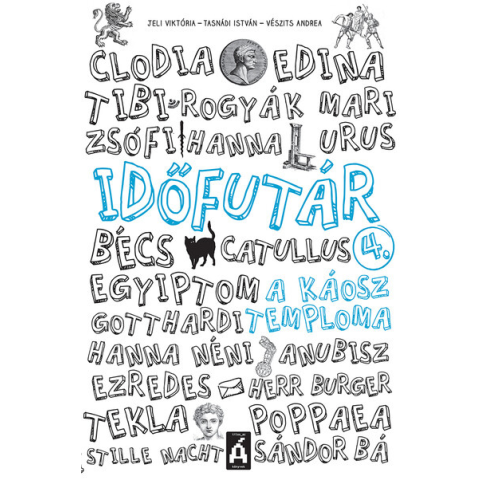 JELI VIKTÓRIA – TASNÁDI ISTVÁN – VÉSZITS ANDREA
CLODIA EDINA
TIBI ROGYÁK MARI
ZSÓFI HANNA URUS
IDŐFUTÁR
BÉCS CATULLUS 4.
EGYIPTOM A KÁOSZ
GOTTHARDI TEMPLOMA
HANNA NÉNI ANUBISZ
EZREDES HERR BURGER
TEKLA POPPAEA
STILLE NACHT SÁNDOR BÁ